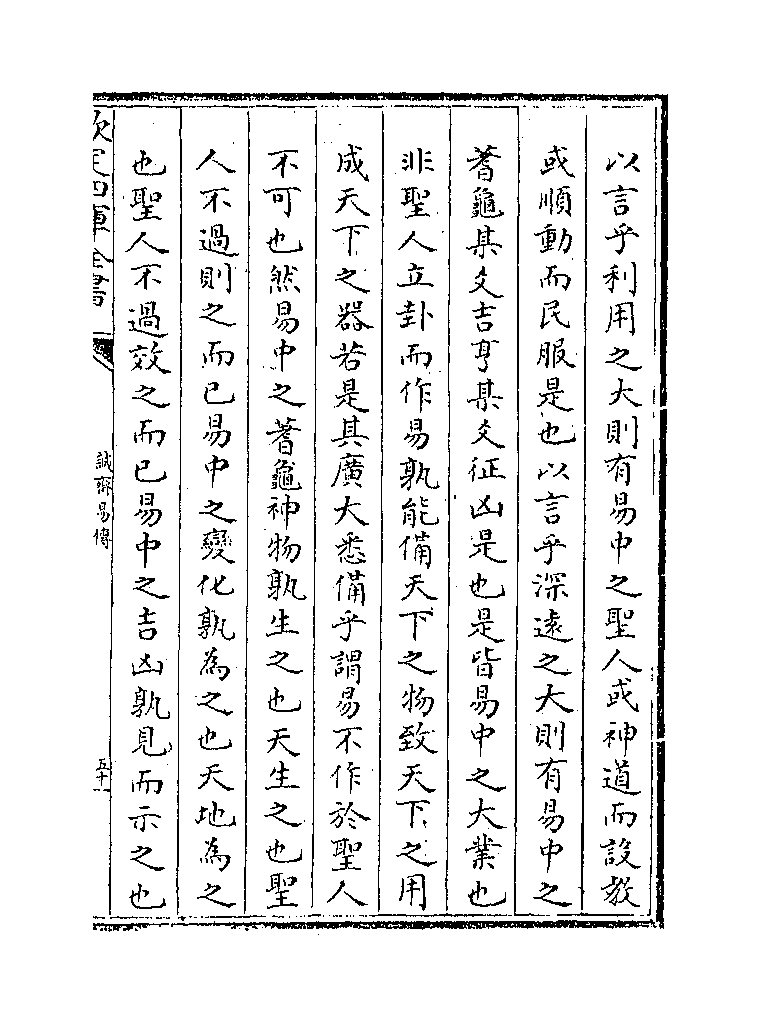 以言乎利用之大則有易中之聖人或神道而設教
或順動而民服是也以言乎深遠之大則有易中之
蓍龜某爻吉亨某爻征凶是也是皆易中之大業也
非聖人立卦而作易孰能備天下之物致天下之用
成天下之器若是其廣大悉備乎謂易不作於聖人
不可也然易中之蓍龜神物孰生之也天生之也聖
人不過則之而已易中之變化孰為之也天地為之
也聖人不過效之而已易中之吉凶孰見而示之也
欽定四庫全書
誠齋易傳
五十一